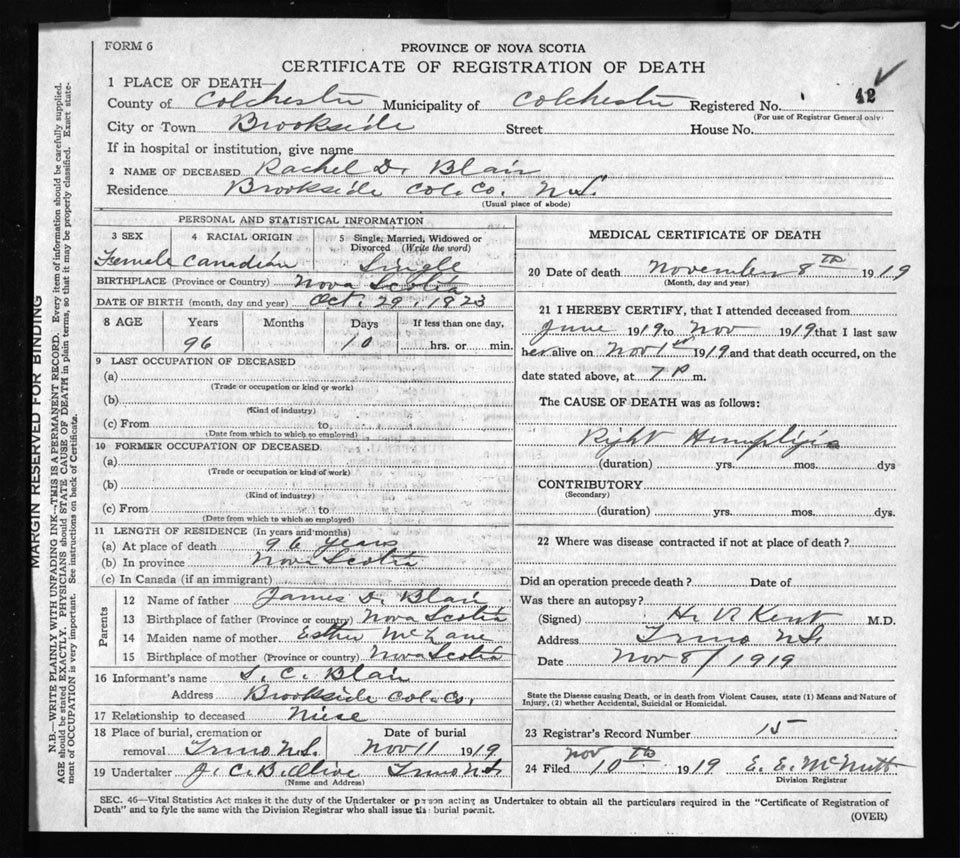 FORM 6
PROVINCE OF NOVA SCOTIA
CERTIFICATE OF REGISTRATION OF DEATH
1 PLACE OF DEATH—
County of Colchester Municipality of Colchester Registered No. 42
(For use of Registrar General only)
City or Town Brookside Street House No.
If in hospital or institution, give name
2 NAME OF DECEASED Rachel D. Blair
Residence Brookside Col. Co. N.S.
(Usual place of abode)
PERSONAL AND STATISTICAL INFORMATION
3 SEX 4 RACIAL ORIGIN 5 Single, Married, Widowed or Divorced (Write the word)
Female Canadian Single
BIRTHPLACE (Province or Country) Nova Scotia
DATE OF BIRTH (month, day and year) Oct. 29, 1823
8 AGE Years Months Days If less than one day,
96 10 hrs. or min.
9 LAST OCCUPATION OF DECEASED
(a)
(Trade or occupation or kind or work)
(b)
(Kind of industry)
(c) From to
(Date from which to which so employed)
10 FORMER OCCUPATION OF DECEASED
(a)
(Trade or occupation or kind of work)
(b)
(Kind of industry)
(c) From to
(Date from which to which so employed)
11 LENGTH OF RESIDENCE (In years and months)
(a) At place of death 96 years
(b) In province Nova Scotia
(c) In Canada (if an immigrant)
Parents
12 Name of father James D. Blair
13 Birthplace of father (Province or country) Nova Scotia
14 Maiden name of mother Esther McLane
15 Birthplace of mother (Province or country) Nova Scotia
16 Informant's name S. C. Blair
Address Brookside Col. Co.
17 Relationship to deceased Niese
18 Place of burial, cremation or removal Truro N.S. Date of burial Nov 11 1919
19 Undertaker J. C. B. Olive Truro N.S.
(Name and Address)
MEDICAL CERTIFICATE OF DEATH
20 Date of death November 8th 1919
(Month, day and year)
21 I HEREBY CERTIFY, that I attended deceased from
June 1919 to Nov 1919 that I last saw
her alive on Nov 1st 1919 and that death occurred, on the
date stated above, at 7 P m.
The CAUSE OF DEATH was as follows:
Right Hemiplegia
(duration) yrs. mos. dys
CONTRIBUTORY
(Secondary)
(duration) yrs. mos. dys.
22 Where was disease contracted if not at place of death?
Did an operation precede death? Date of
Was there an autopsy?
(Signed) H. V. Kent M.D.
Address Truro N.S.
Date Nov 8/1919
State the Disease causing Death, or in death from Violent Causes, state (1) Means and Nature of
Injury, (2) whether Accidental, Suicidal or Homicidal.
23 Registrar's Record Number 15
24 Filed Nov 10th 1919 E. E. McNutt
Division Registrar
SEC. 46—Vital Statistics Act makes it the duty of the Undertaker or person acting as Undertaker to obtain all the particulars required in the "Certificate of Registration of
Death" and to fyle the same with the Division Registrar who shall issue the burial permit.
(OVER)
MARGIN RESERVED FOR BINDING
N.B.—WRITE PLAINLY WITH UNFADING INK—THIS IS A PERMANENT RECORD. Every item of information should be carefully supplied.
AGE should be stated EXACTLY. PHYSICIANS should STATE CAUSE OF DEATH in plain terms, so that it may be properly classified. Exact state-
ment of OCCUPATION is very important. See instructions on back of Certificate.